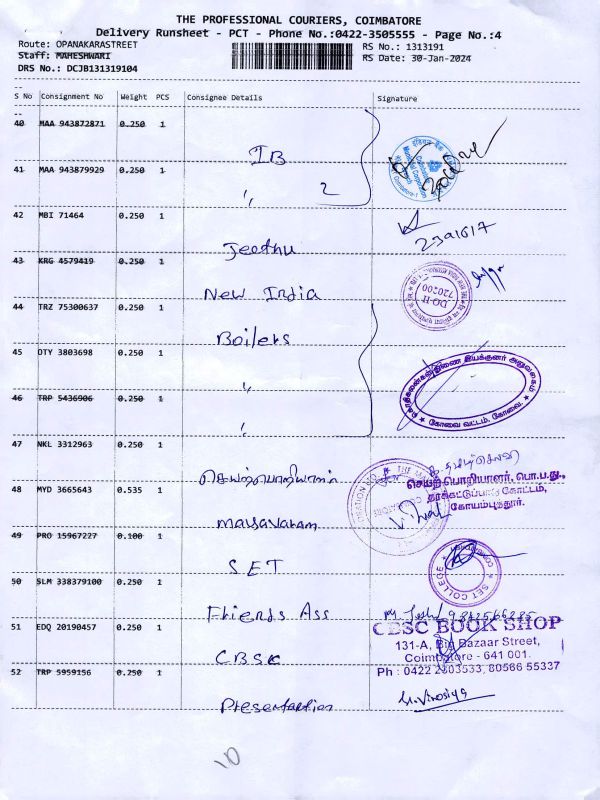 THE PROFESSIONAL COURIERS, COIMBATORE
Delivery Runsheet - PCT - Phone No.:0422-3505555 - Page No.:4
Route: OPANAKARASTREET
RS No.: 1313191
Staff: MAHESHWARI
RS Date: 30-Jan-2024
DRS No.: DCJB131319104
S No Consignment No Weight PCS Consignee Details Signature
40 MAA 943872871 0.250 1
IB
41 MAA 943879929 0.250 1
,, 2
42 MBI 71464 0.250 1
Jeethu
43 KRG 4579419 0.250 1
New India
DO II
720700
44 TRZ 75300637 0.250 1
Boilers
45 OTY 3803698 0.250 1
,,
கோவை வட்டம், கோவை.
46 TRP 5436906 0.250 1
,,
47 NKL 3312963 0.250 1
செயற்பொறியாளர், பொ.ப.து.,
48 MYD 3665643 0.535 1
கோயம்புத்தூர்.
mayavaram
49 PRO 15967227 0.100 1
SET
SET COLLEGE
50 SLM 338379100 0.250 1
Friends Ass
CBSC BOOK SHOP
51 EDQ 20190457 0.250 1
131-A, Big Bazaar Street,
CBSC
Coimbatore - 641 001.
52 TRP 5959156 0.250 1
Ph : 0422 2303533, 80566 55337
Presentation
10